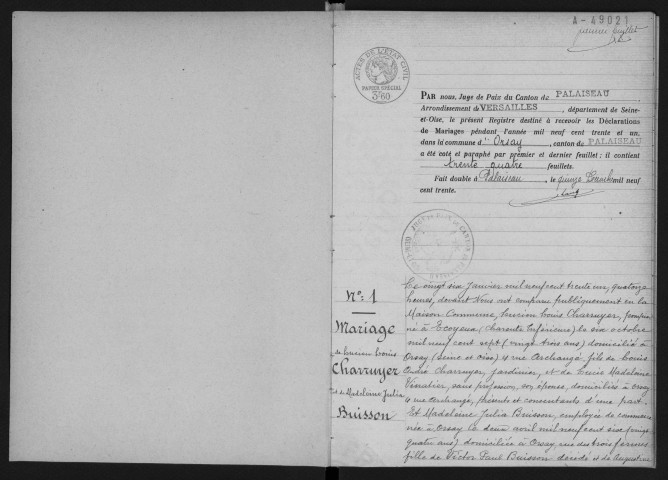 A-49021
premier feuillet
ACTES DE L'ETAT CIVIL
PAPIER SPÉCIAL
3F60
PAR nous, Juge de Paix du Canton de PALAISEAU
Arrondissement de VERSAILLES, département de Seine-
et-Oise, le présent Registre destiné à recevoir les Déclarations
de Mariages pendant l'année mil neuf cent trente et un,
dans la commune d'Orsay, canton de PALAISEAU
a été coté et paraphé par premier et dernier feuillet : il contient
trente quatre feuillets.
Fait double à Palaiseau, le quinze mil neuf
cent trente.
N°: 1
Mariage
de Lucien Louis
Charruyer
et de Madeleine Julia
Buisson
Le vingt six Janvier mil neuf cent trente un, quatorze
heures, devant Nous ont comparu publiquement en la
Maison Commune, Lucien Louis Charruyer,
né à Ecoyeux (Charente Inférieure) le six octobre
mil neuf cent sept (vingt trois ans) domicilié à
Orsay (Seine et Oise) 4 rue Archangé, fils de Louis
André Charruyer, jardinier, et de Marie Madeleine
sans profession, son épouse, domiciliés à Orsay
4 rue Archangé, présents et consentants d'une part.
Et Madeleine Julia Buisson, employée de commerce
née à Orsay le deux avril mil neuf cent six (vingt
quatre ans) domiciliée à Orsay, rue des trois fermes
fille de Victor Paul Buisson décédé et de Augustine